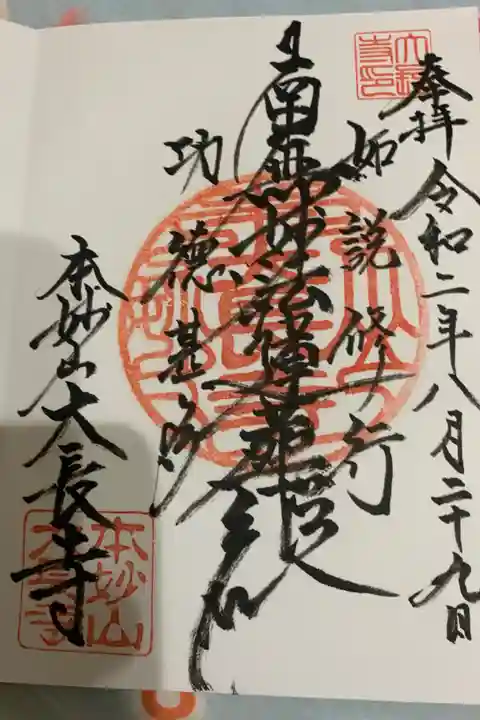 奉拝 令和二年八月二十九日
如説修行
南無妙法蓮華経
功徳甚多
本妙山大長寺
本妙山
大長寺